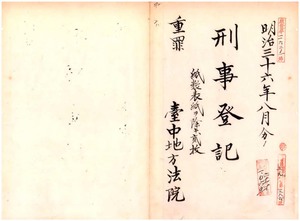 明治三十六年八月分
刑事登記
紙數表紙ヲ除キ貳枚
臺中地方法院
重罪